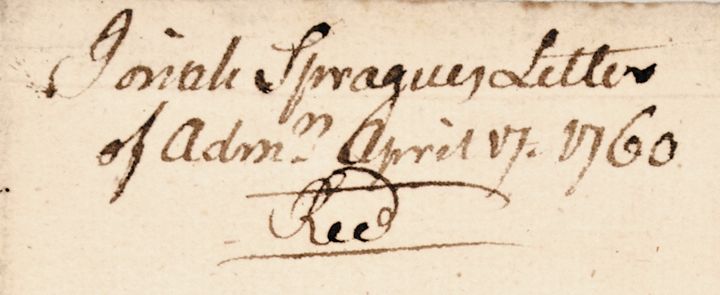 Josiah Spragues Letter
of Admn. April 17. 1760
Recd